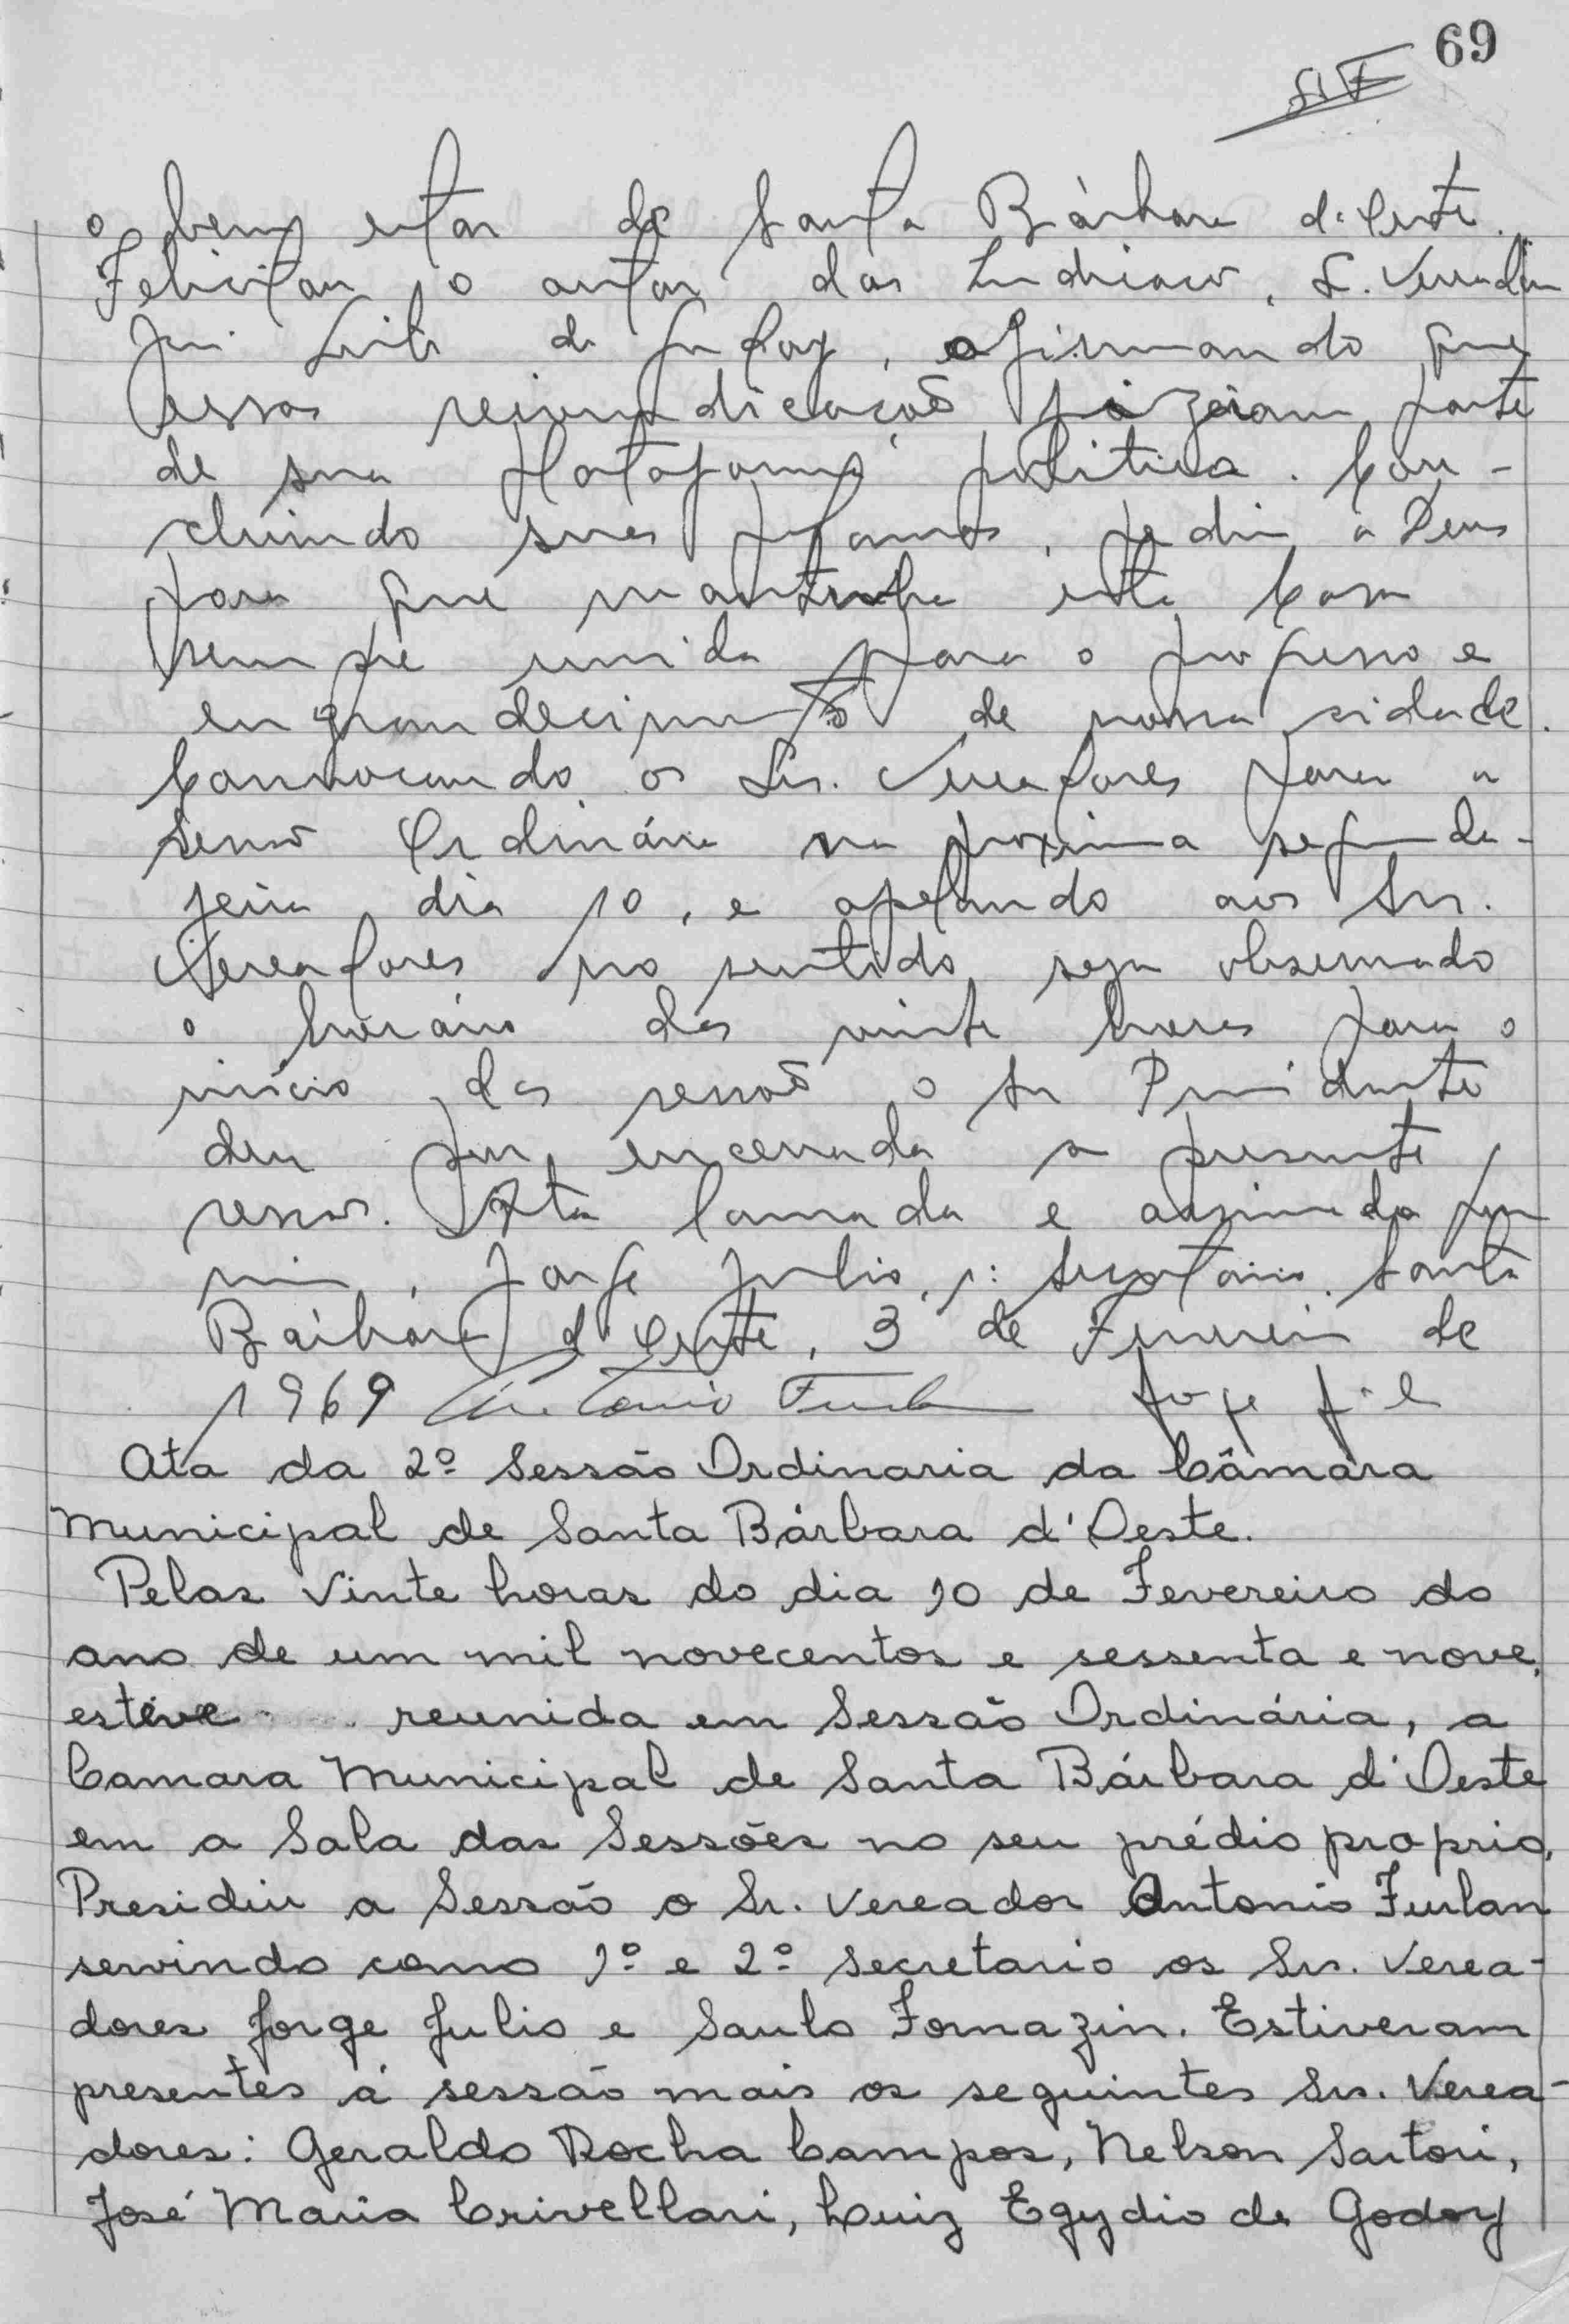 69
o bem estar de Santa Bárbara d'Oeste.
Felicitou o autor das Indicacões, Sr. Vereador
de Godoy, afirmando que
essas reivindicacoẽs fizeram parte
de sua plataforma política. Con-
cluindo suas palavras, pediu a Deus
para que mantenha esta Casa
sempre unida para o progresso e
engrandecimento de nossa cidade.
Convocando os Srs. Vereadores para a
sessão Ordinária na proxima segunda-
feira dia 10, e apelando aos Srs.
Vereadores no sentido seja observado
o horário das vinte horas para o
início das sessoẽs o Sr Presidente
deu por encerrada a presente
sessão. Ata lavrada e assinada por
mim, Jorge Julio, 1º Secretario. Santa
Bárbara d'Oeste, 3 de Fevereiro de
1969 Antonio Furlan Jorge Julio
Ata da 2º Sessão Ordinaria da Câmara
Municipal de Santa Bárbara d'Oeste.
Pelas Vinte horas do dia 10 de Fevereiro do
ano de um mil novecentos e sessenta e nove,
estêve reunida em Sessão Ordinária, a
Camara Municipal de Santa Bárbara d'Oeste
em a Sala das Sessões no seu prédio proprio.
Presidiu a Sessão o Sr. Vereador Antonio Furlan
servindo como 1º e 2º Secretario os Srs. Verea-
dores Jorge Julio e Saulo Fornazin. Estiveram
presentes á sessão mais os seguintes Srs. Verea-
dores: Geraldo Rocha Campos, Nelson Sartori,
José Maria Crivellari, Luiz Egydio de Godoy